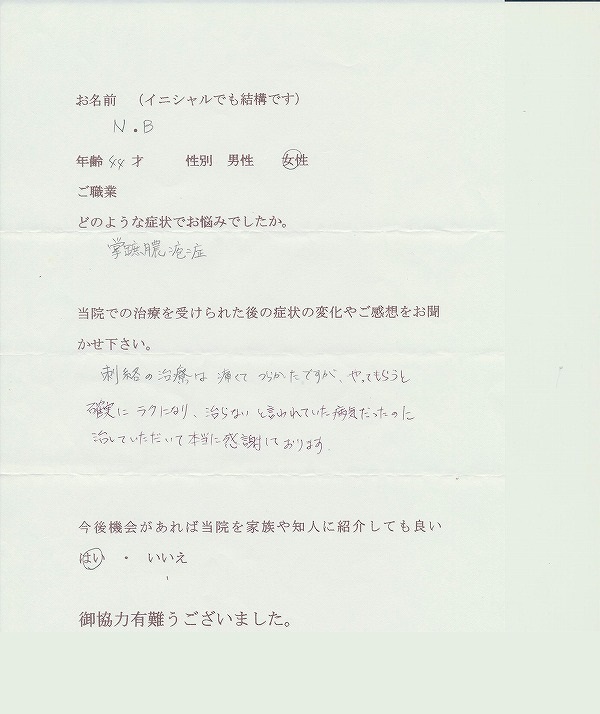 お名前　（イニシャルでも結構です）
N.B
年齢 44 才　性別　男性　女性
ご職業
どのような症状でお悩みでしたか。
掌蹠膿疱症
当院での治療を受けられた後の症状の変化やご感想をお聞
かせ下さい。
刺絡の治療は痛くてつらかたですが、やってもらうと
確実にラクになり、治らないと言われていた病気だったのに
治していただいて本当に感謝しております。
今後機会があれば当院を家族や知人に紹介しても良い
はい　・　いいえ
御協力有難うございました。